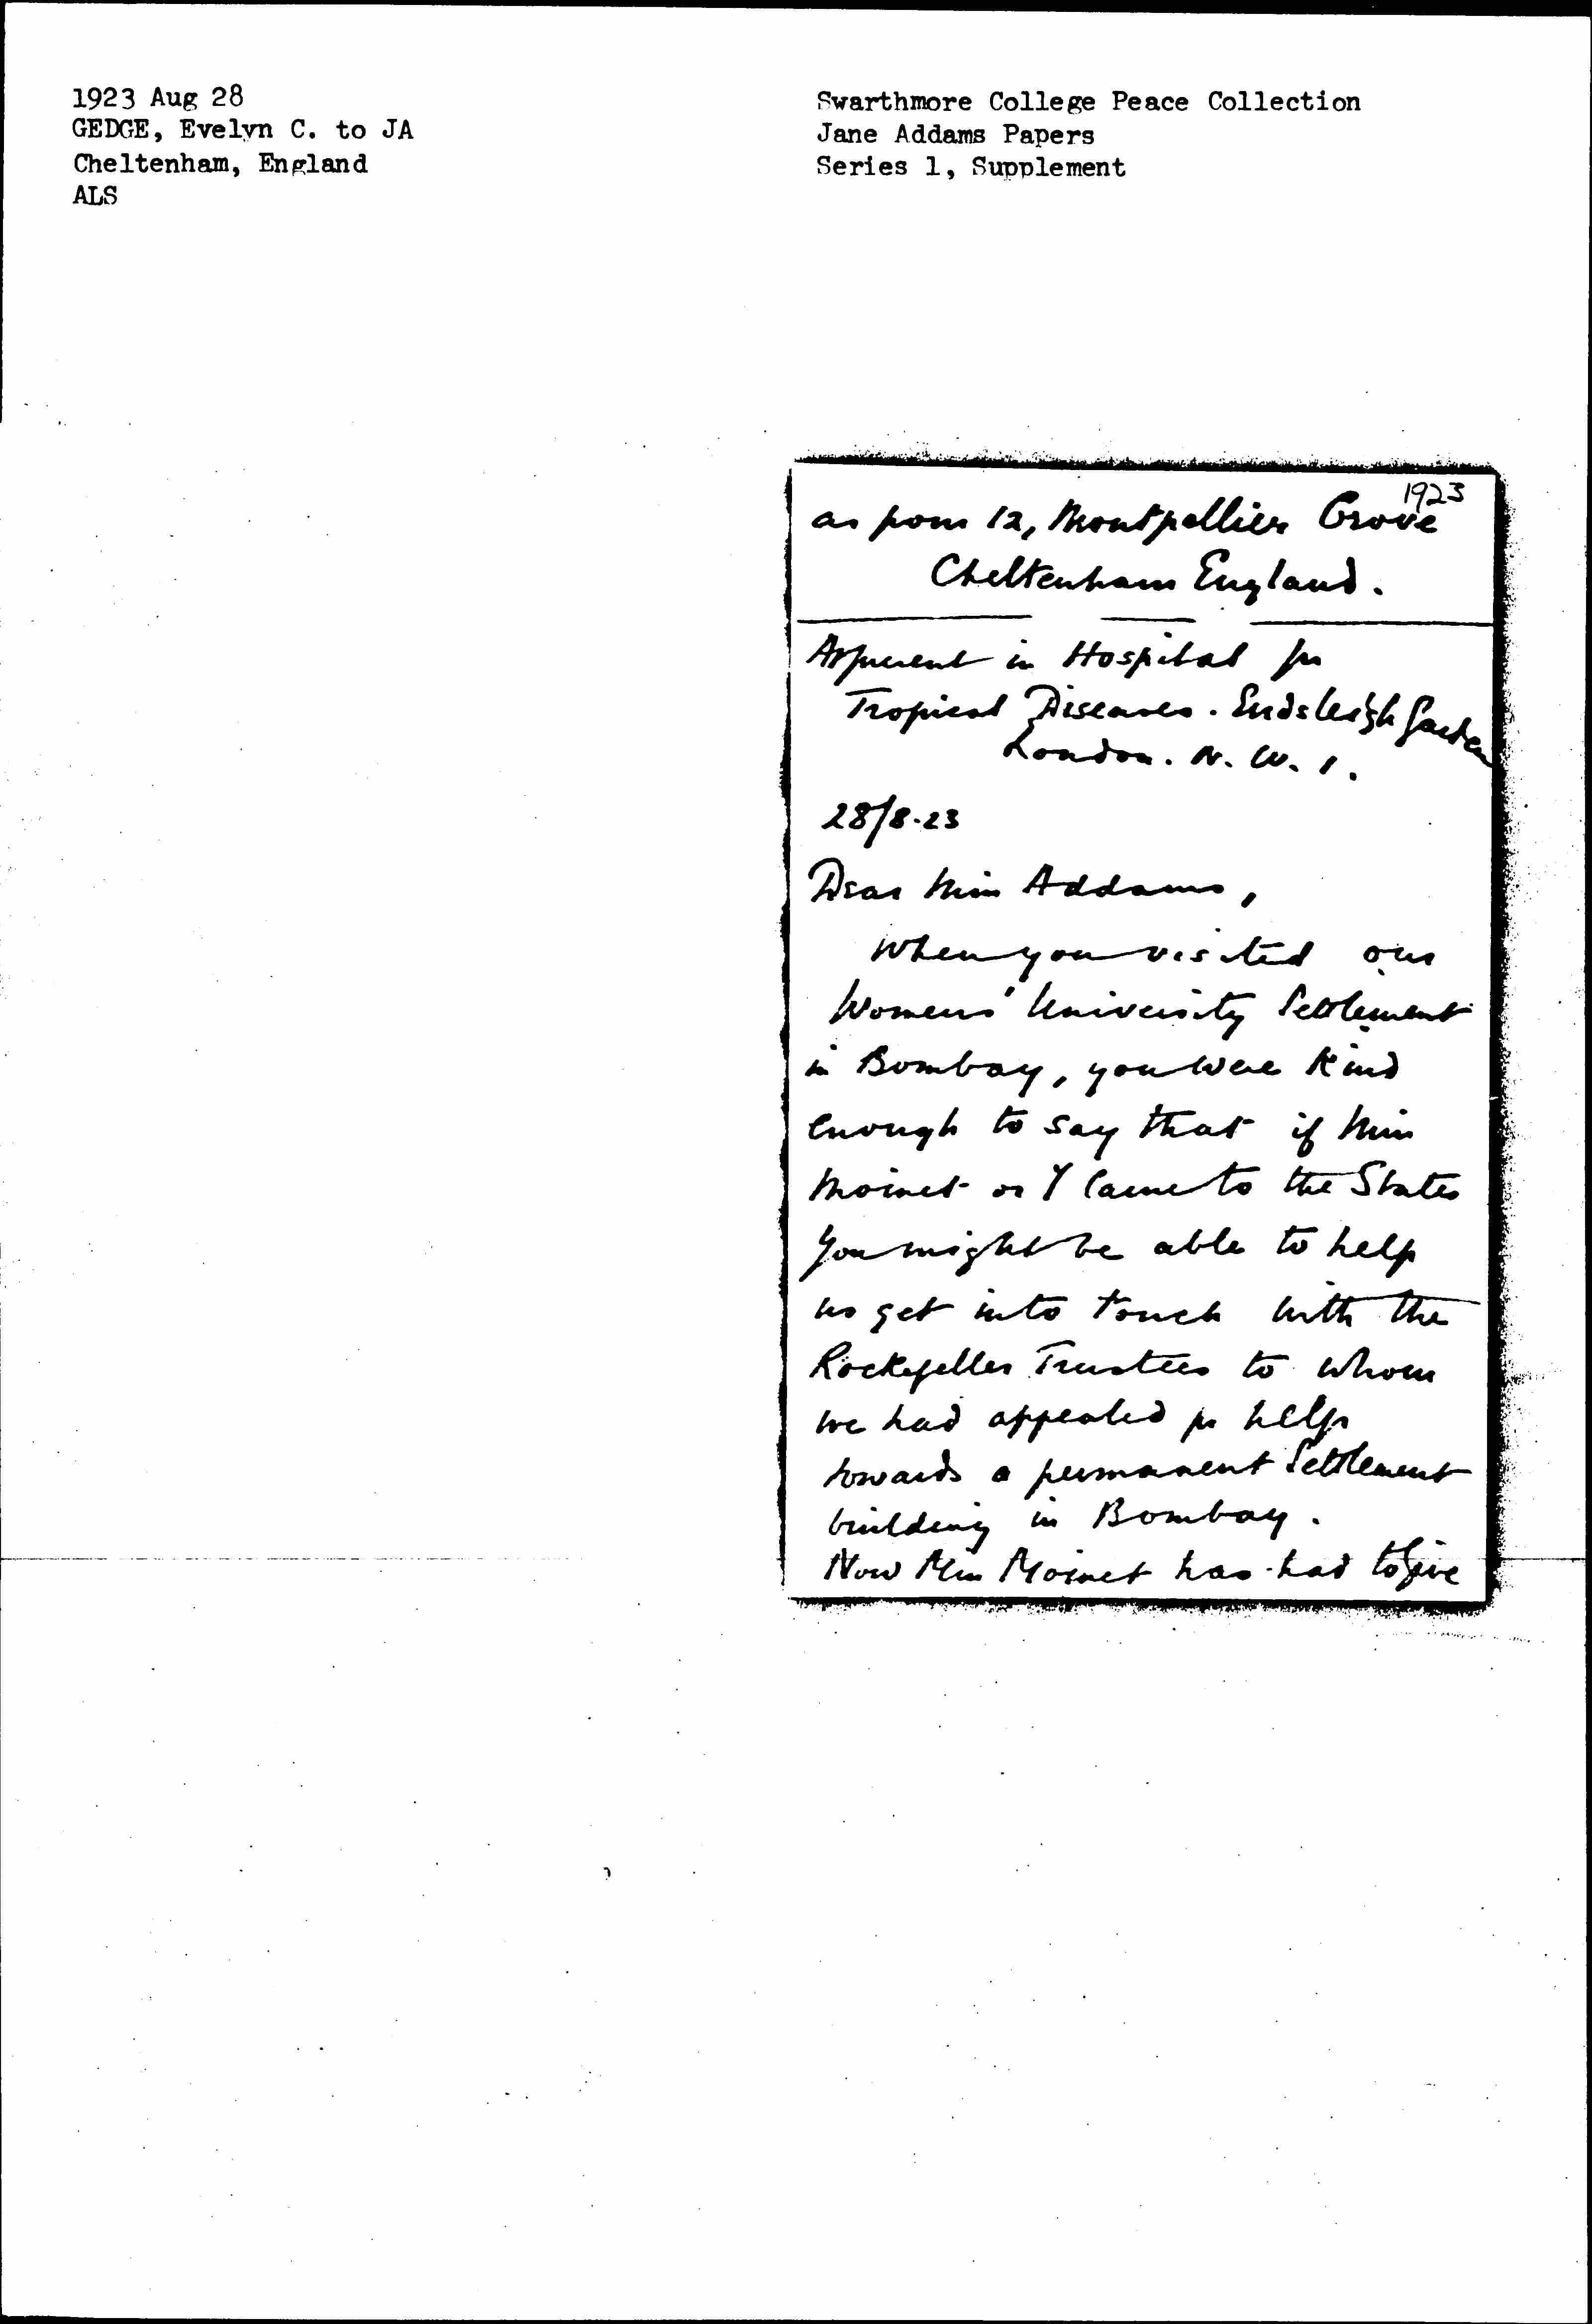 1923 Aug 28
GEDGE, Evelyn C. to JA
Cheltenham, England
ALS
Swarthmore College Peace Collection
Jane Addams Papers
Series 1, Supplement
1923
as from 12, Montpellier Grove
Cheltenham England.
At present in Hospital for
Tropical Diseases. Endsleigh Garden
London. N. W. 1.
28/8.23
Dear Miss Addams,
When you visited our
Womens' University Settlement
in Bombay, you were kind
enough to say that if Miss
Moinet or I came to the States
you might be able to help
us get into touch with the
Rockefeller Trustees to whom
we had appealed for help
towards a permanent Settlement
building in Bombay.
Now Miss Moinet has had to give